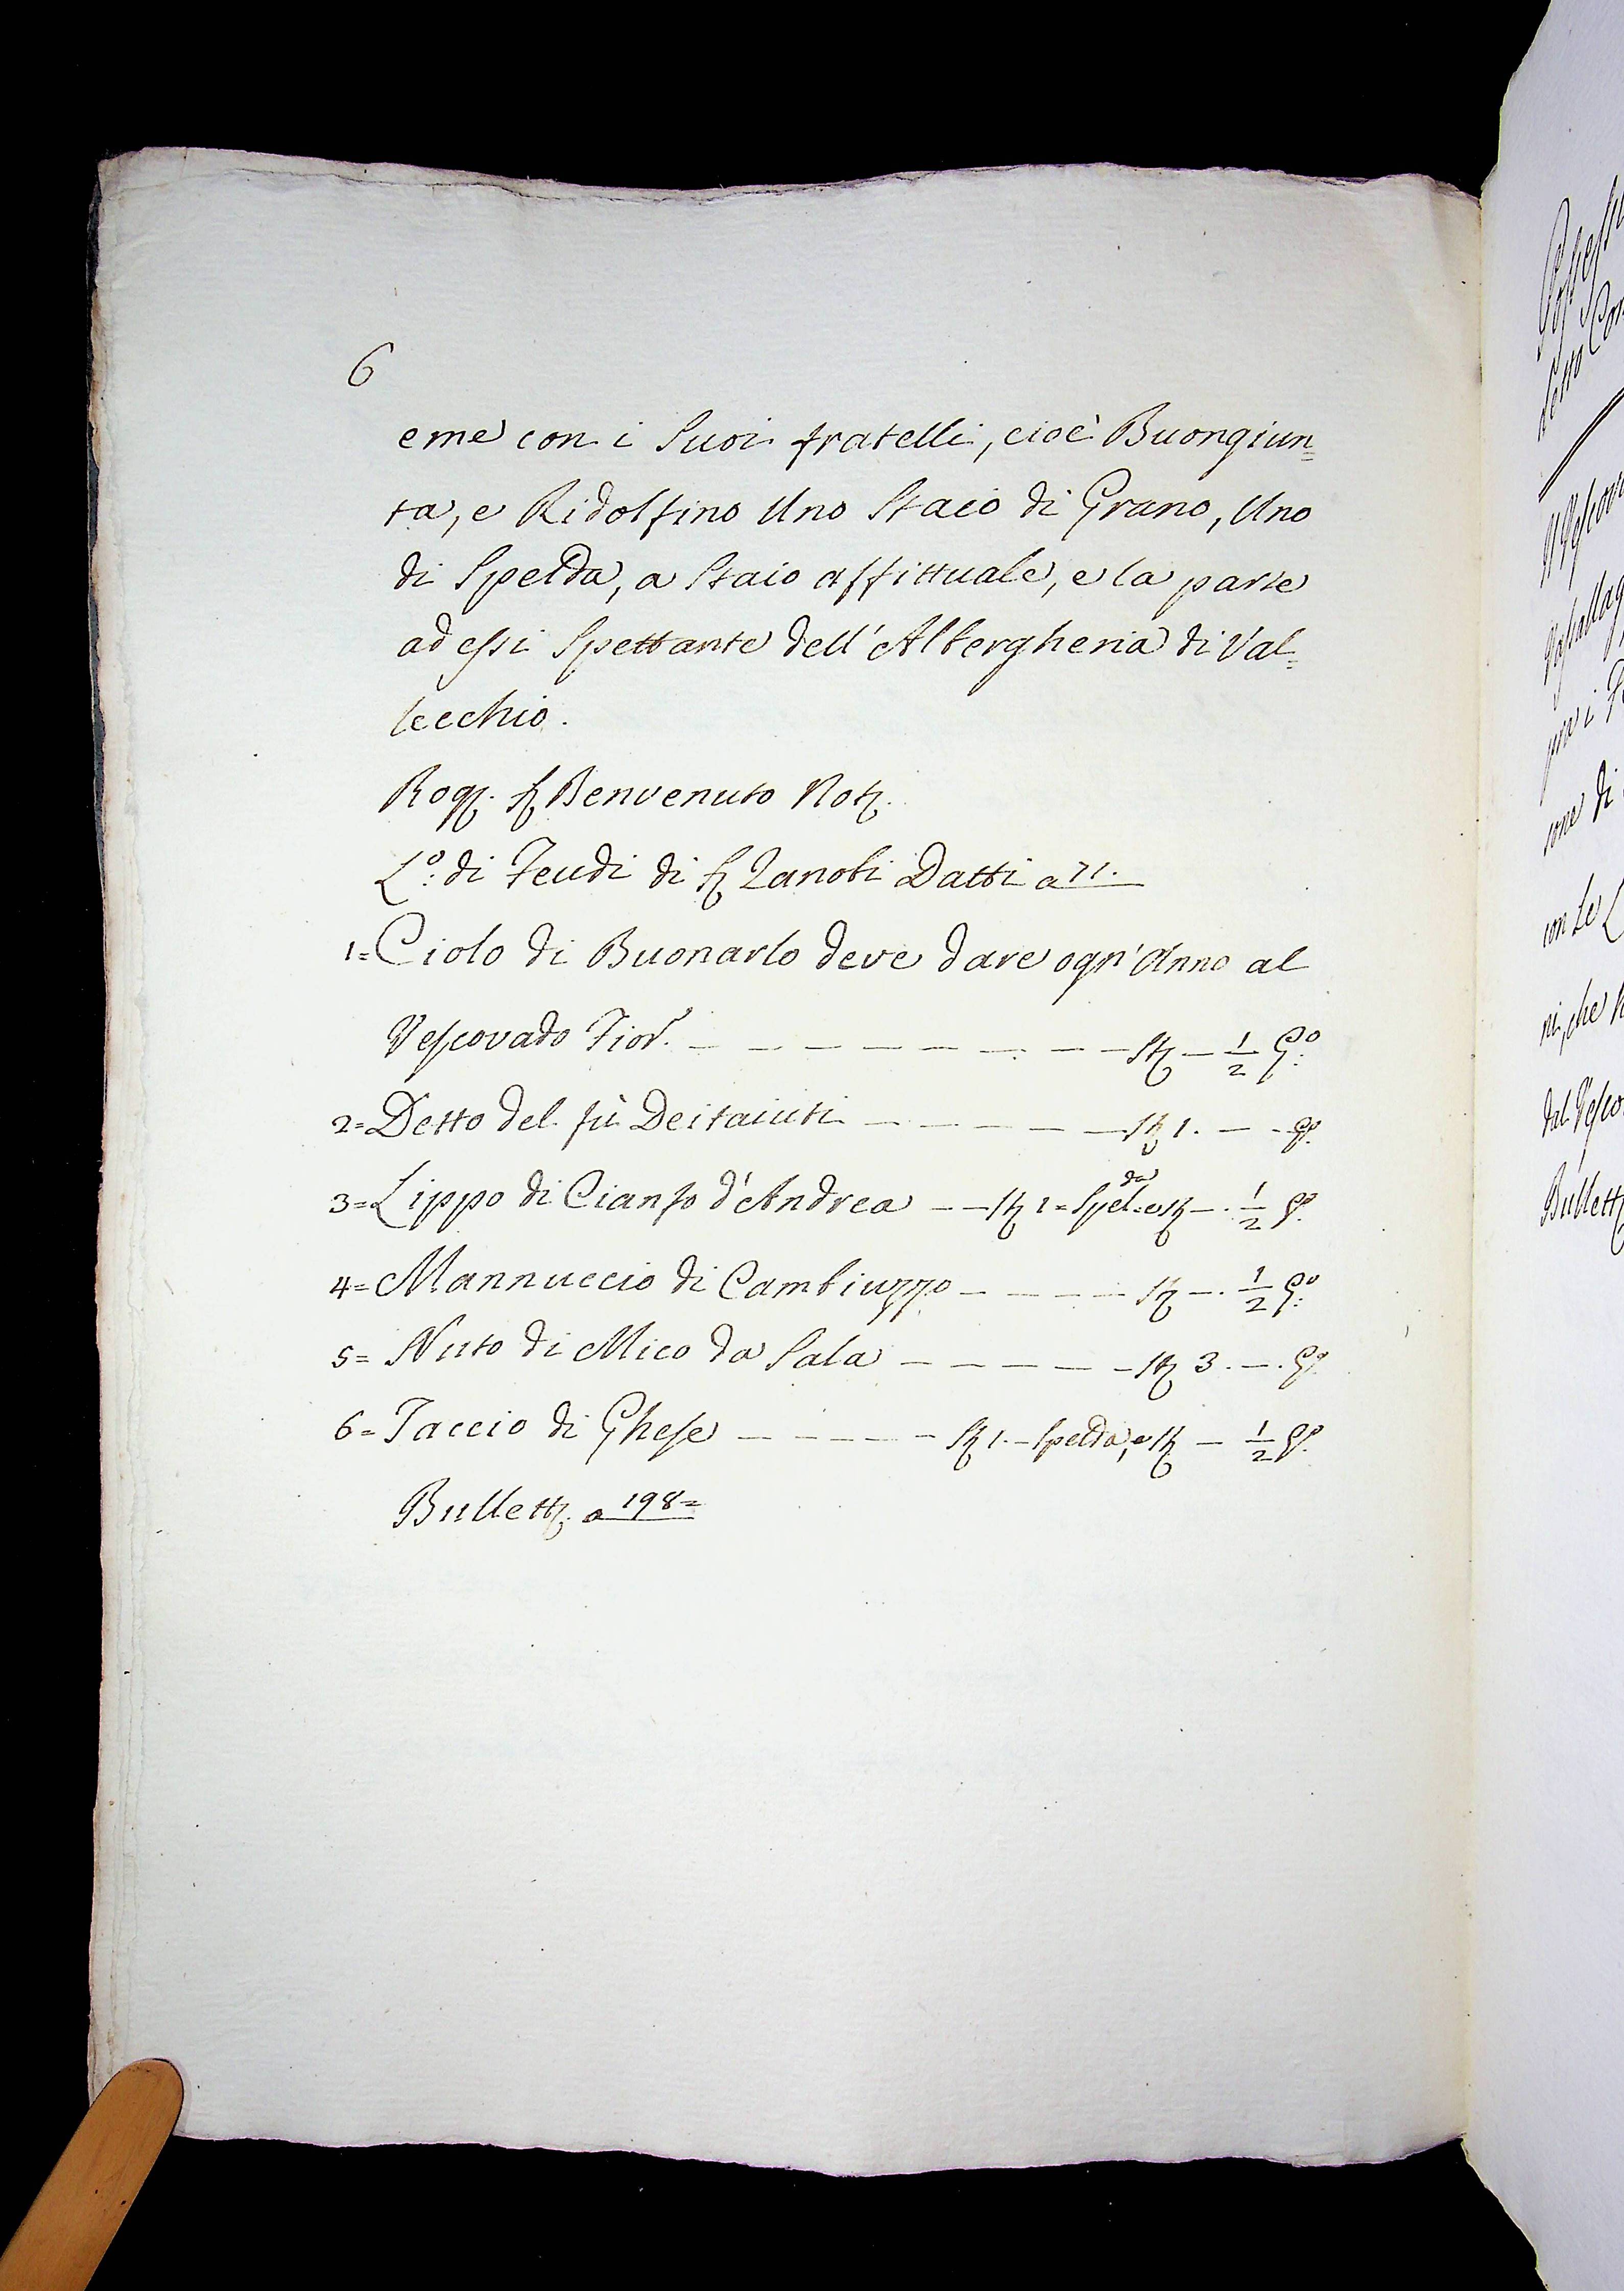 6
eme con i Suoi fratelli, cioè Buongiun=
ta, e Ridolfino Uno Staio di Grano, Uno
di Spelda, a Staio affittuale, e la parte
ad essi Spettante dell'Albergheria di Val=
lecchio.
Rog. S. Benvenuto Not.
L.o di Feudi di S. Zanobi Datti a 71.
1= Ciolo di Buonarlo deve dare ogn'Anno al
Vescovado Fior. — — — — — — — — St. — 1/2 G.o
2= Detto del fù Deitaiuti — — — — — St. 1. — — G.o
3= Lippo di Cianfo d'Andrea — — St. 1= Spel.da e St. — . 1/2 G.o
4= Mannuccio di Cambiuzzo — — — — St. — . 1/2 G.o
5= Nuto di Mico da Sala — — — — — St. 3. — . G.o
6= Taccio di Ghese — — — — — St. 1. — Spelda, e St. — 1/2 G.o
Bullett. a 198=
con Le
ni, che
Bullett